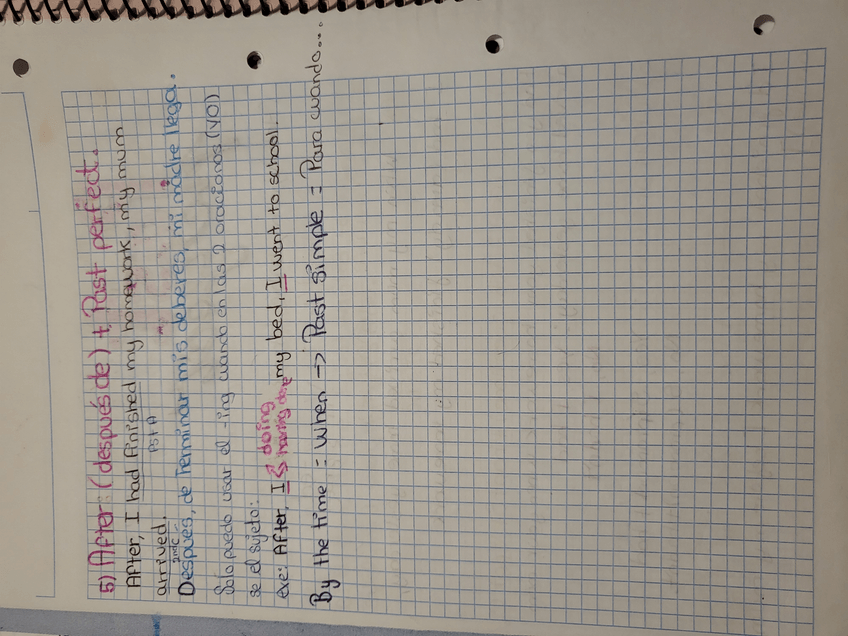 5) After: (después de) + Past perfect.
After, I had finished my homework, my mum
arrived.
Después, de terminar mis deberes, mi madre llega.
Solo puedo usar el -ing cuando en las 2 oraciones (YO)
se el sujeto:
doing
exe: After, I having done my bed, I went to school.
By the time = when -> Past simple = Para cuando...